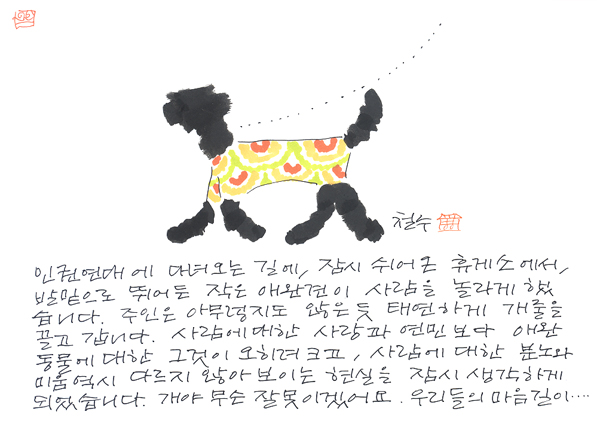 철수
인권연대에 다녀오는 길에, 잠시 쉬어 큰 휴게소에서,
발밑으로 뛰어든 작은 애완견이 사람을 놀라게 했
습니다. 주인은 아무렇지도 않은듯 태연하게 개줄을
끌고 갑니다. 사람에대한 사랑과 연민보다 애완
동물에 대한 그것이 오히려 크고, 사람에 대한 분노와
미움 역시 다르지 않아 보이는 현실을 잠시 생각하게
되었습니다. 개야 무슨 잘못이겠어요. 우리들의 마음길이....